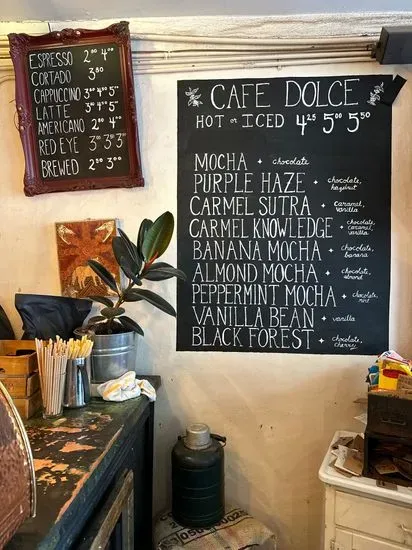 ESPRESSO 2⁰⁰ 4⁰⁰
CORTADO 3⁸⁰
CAPPUCCINO 3⁵⁰ 4⁵⁰ 5⁰⁰
LATTE 3⁵⁰ 4⁵⁰ 5⁰⁰
AMERICANO 2⁵⁰ 4⁰⁰
RED EYE 3⁰⁰ 3⁵⁰ 3⁷⁵
BREWED 2⁵⁰ 3⁰⁰
CAFE DOLCE
HOT or ICED 4²⁵ 5⁰⁰ 5⁵⁰
MOCHA + chocolate
PURPLE HAZE + chocolate, hazelnut
CARMEL SUTRA + caramel, vanilla
CARMEL KNOWLEDGE + chocolate, caramel, vanilla
BANANA MOCHA + chocolate, banana
ALMOND MOCHA + chocolate, almond
PEPPERMINT MOCHA + chocolate, mint
VANILLA BEAN + vanilla
BLACK FOREST + chocolate, cherry